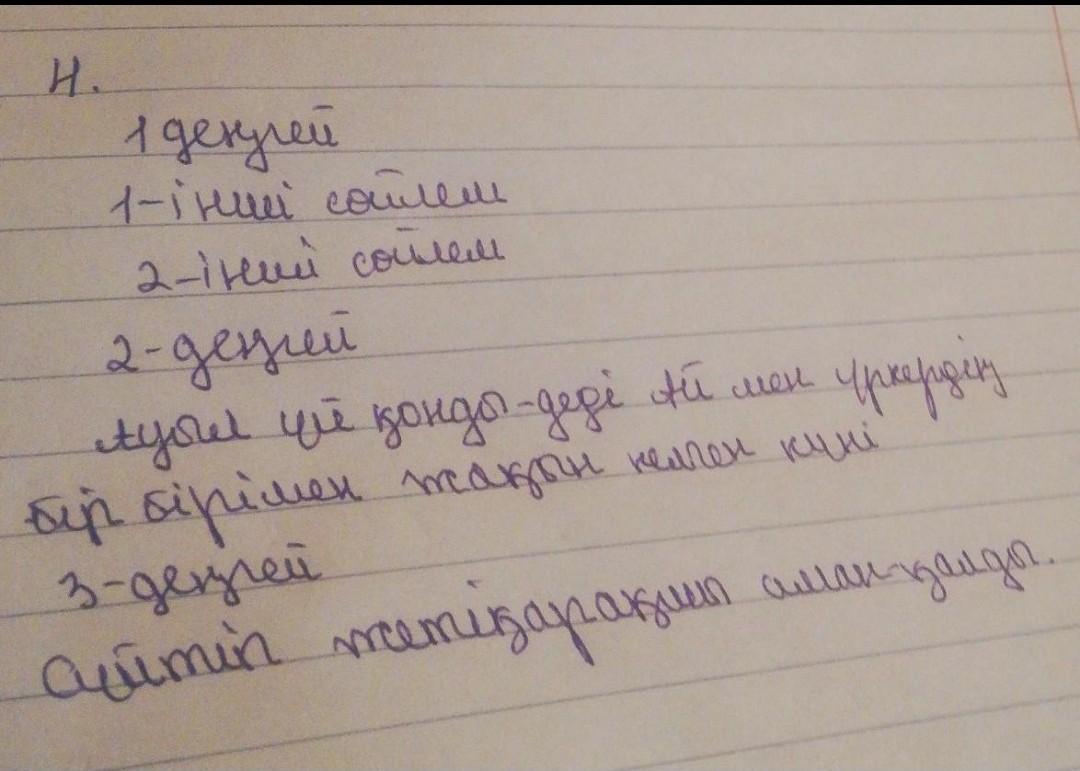 4.
1 деңгей
1-інші сөйлем
2-інші сөйлем
2-деңгей
Ауыл үй қонды-деді Ай мен үркердің
бір бірімен жақын келген күні
3-деңгей
Сүйтіп жетіқарақшы аман-қалды.